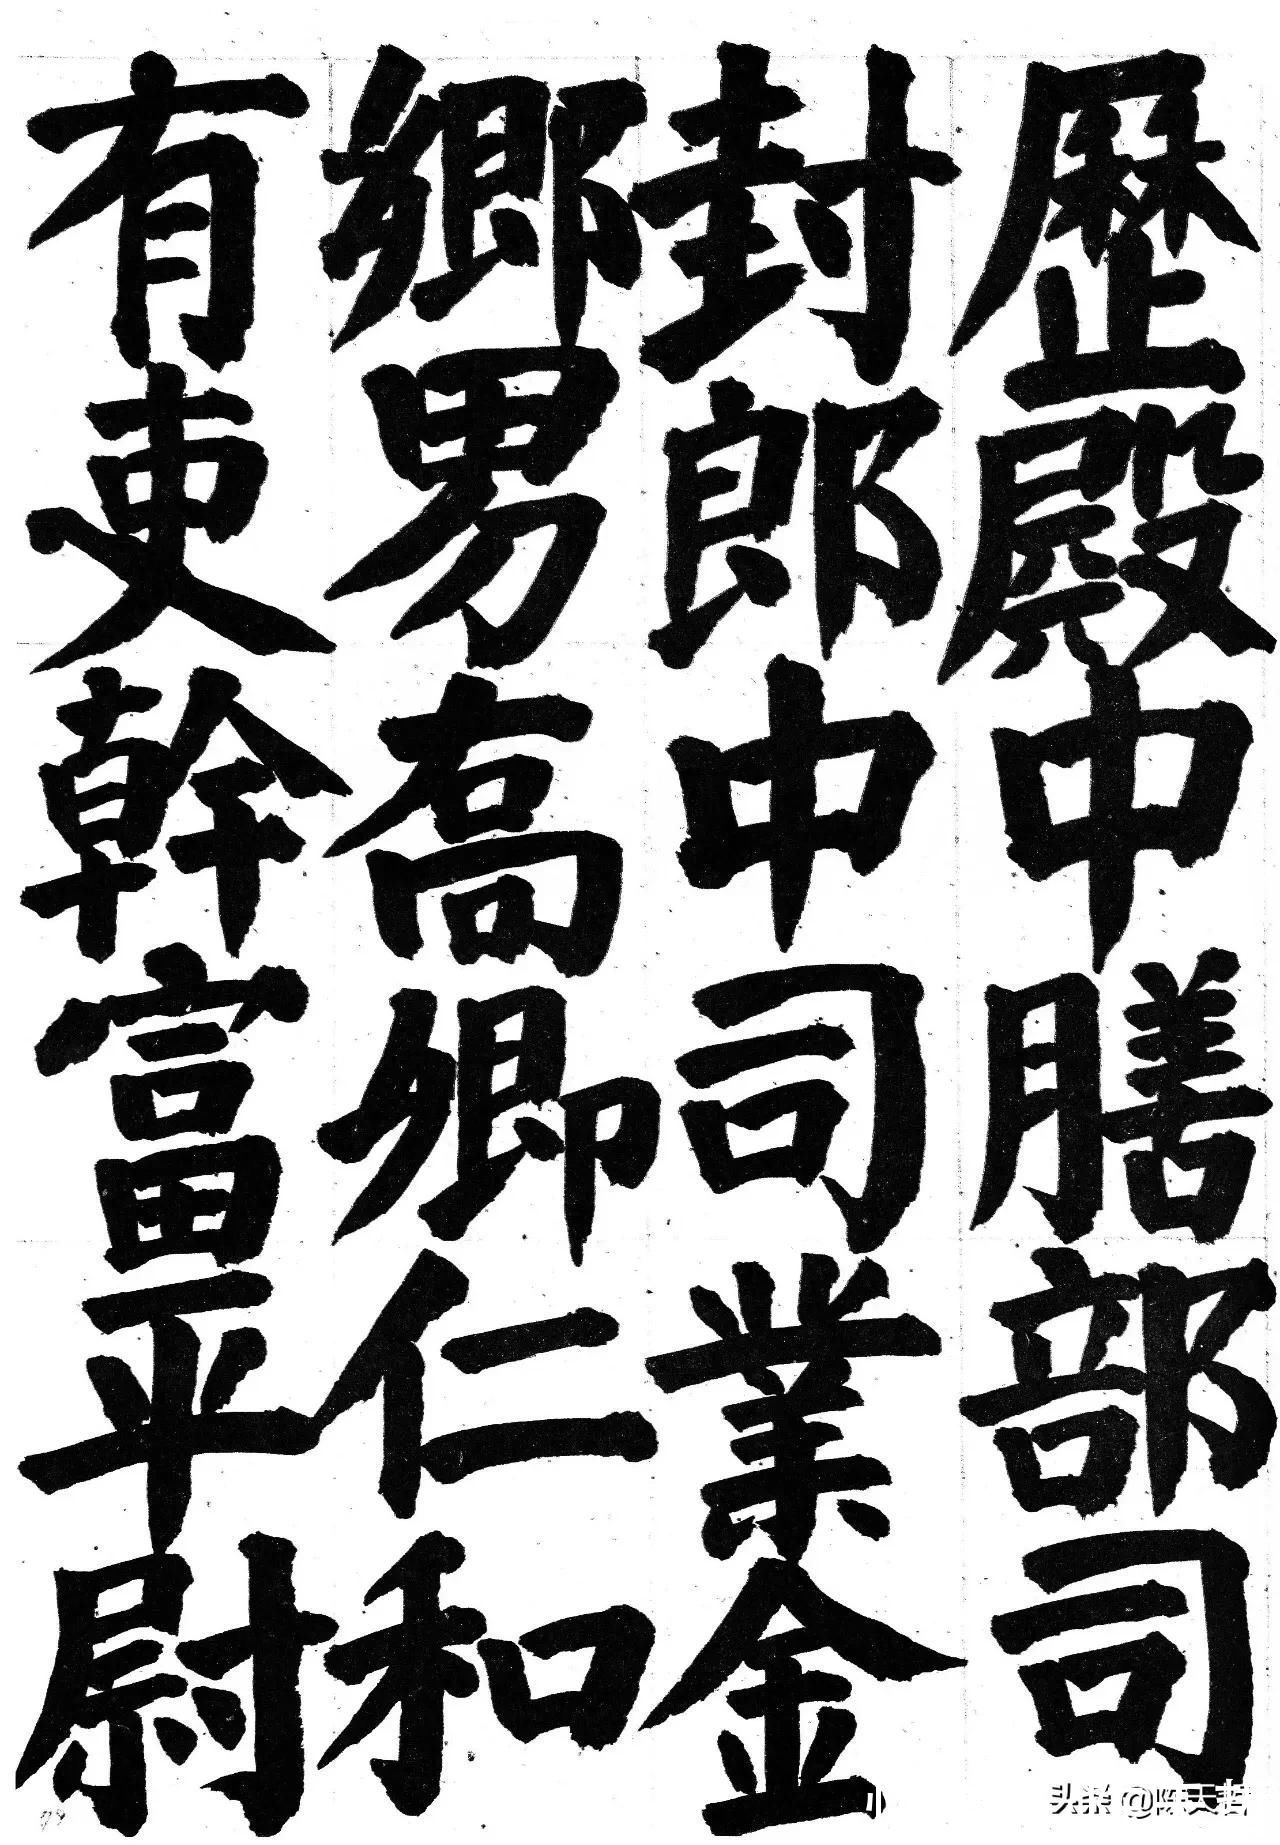 歷殿中膳部司
封郎中司業金
鄉男高卿仁和
有吏幹富平尉
头条 @陈天哲